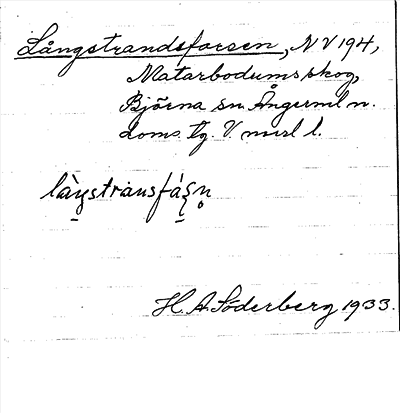 Långstrandsforsen, NV 194,
Matarbodums skog,
Björna sn. Ångerml n.
doms. tg. V.
làŋstransfásn
H. A. Söderberg 1933.